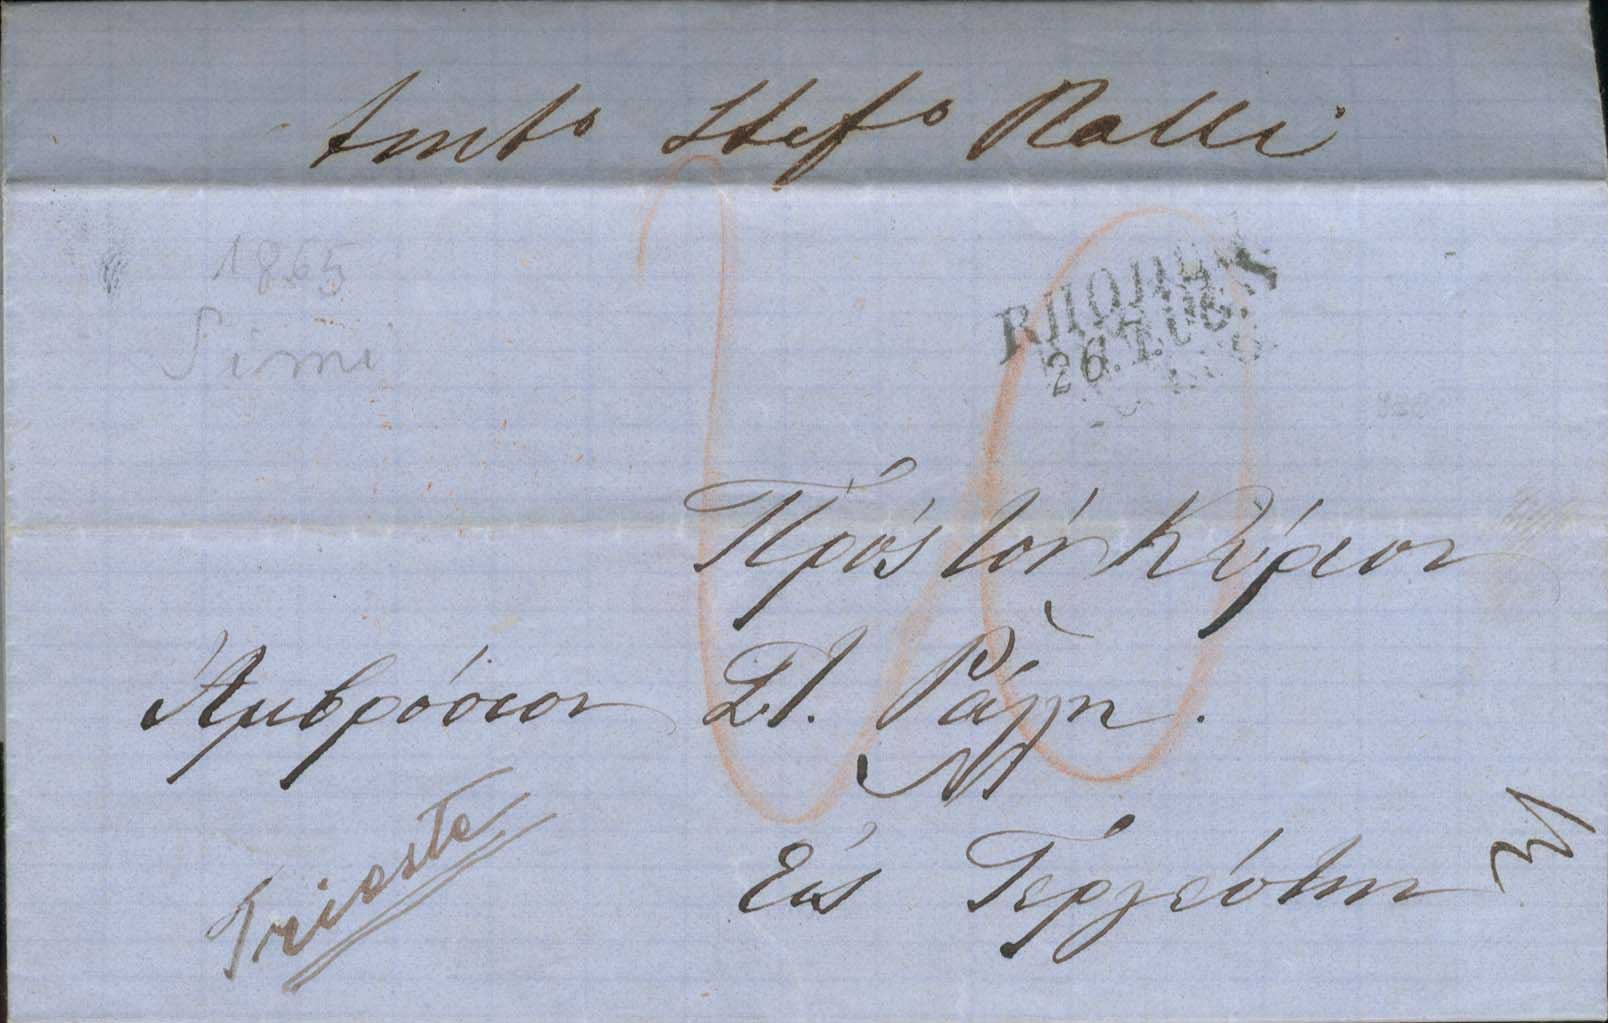 Ambo Stefo Ralli
1865
Simi
RHODUS
26. AUG.
Πρός τόν Κύριον
Ἀμβρόσιον Στ. Ράλλη.
Εἰς Τεργέστην
Trieste